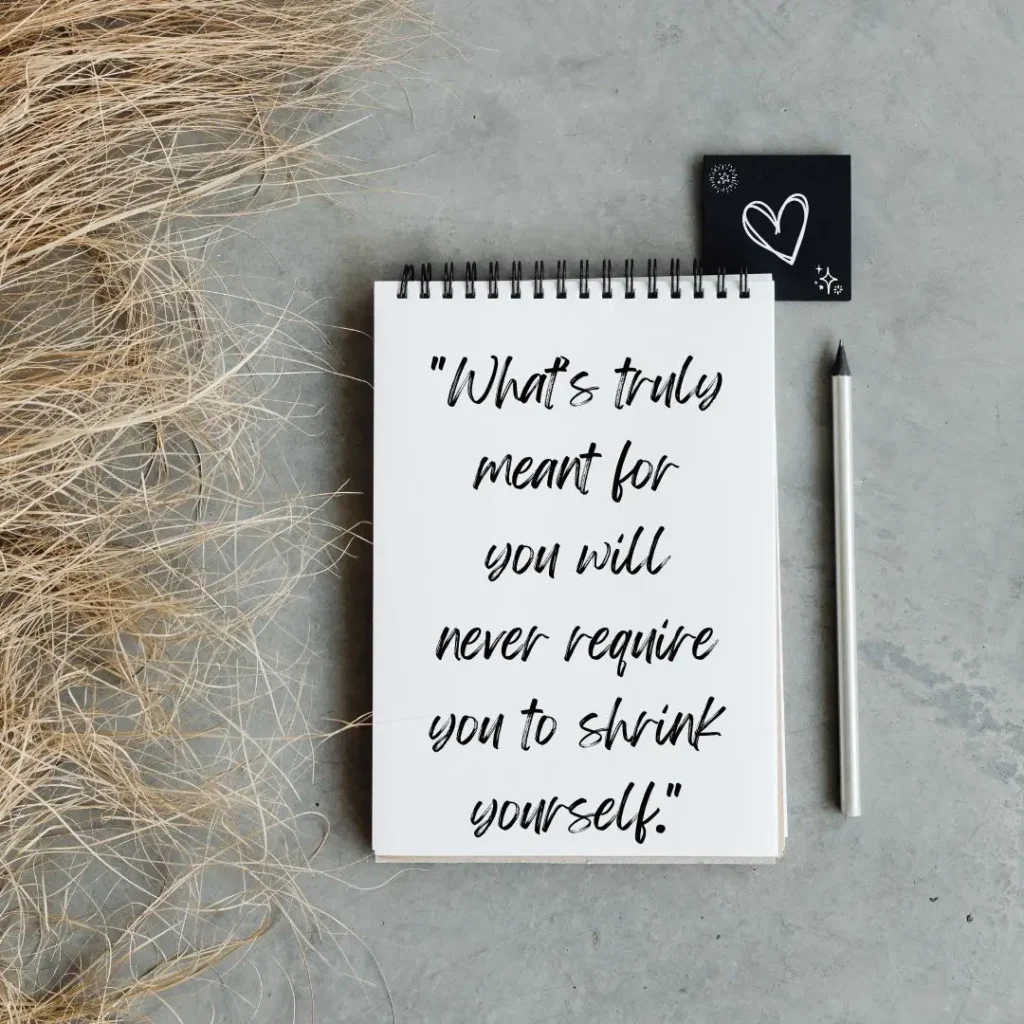 "What's truly
meant for
you will
never require
you to shrink
yourself."